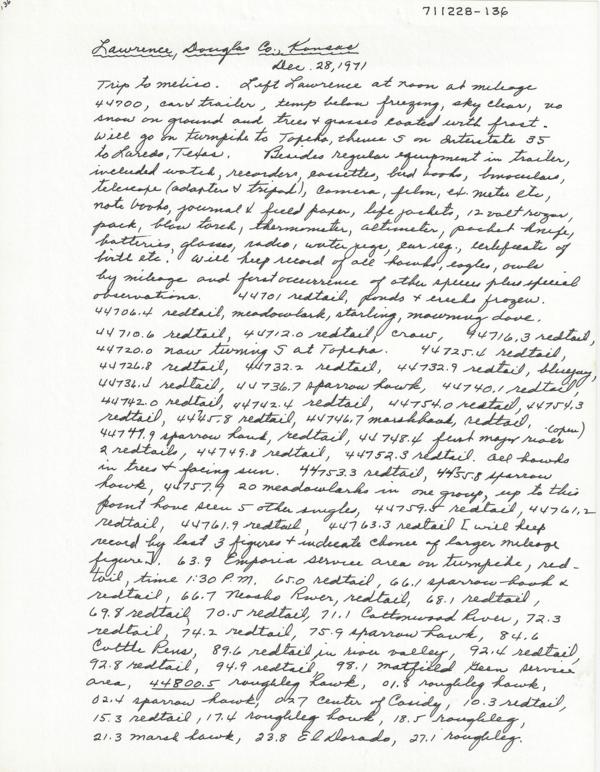 136
711228-136
Lawrence, Douglas Co., Kansas
Dec. 28, 1971
Trip to mexico. Left Lawrence at noon at mileage
44700, car & trailer, temp below freezing, sky clear, no
snow on ground and trees & grasses coated with frost.
Will go on turnpike to Topeka, thence S on Interstate 35
to Laredo, Texas. Besides regular equipment in trailer,
included watch, recorders, cassettes, bird books, binoculars,
telescope (adapter & tripod), camera, film, ex. meter etc,
note books, journal & field paper, life jackets, 12 volt razor,
pack, blow torch, thermometer, altimeter, pocket knife,
batteries, glasses, radio, water jugs, car reg., certificate of
birth etc. Will keep record of all hawks, eagles, owls
by mileage and first occurrence of other species plus special
observations. 44701 redtail, ponds & creeks frozen.
44706.4 redtail, meadowlark, starling, mourning dove.
44710.6 redtail, 44712.0 redtail, crow, 44716.3 redtail,
44720.0 now turning S at Topeka. 44725.4 redtail,
44726.8 redtail, 44732.2 redtail, 44732.9 redtail, bluejay,
44736.1 redtail, 44736.7 sparrow hawk, 44740.1 redtail,
44742.0 redtail, 44742.4 redtail, 44754.0 redtail, 44754.3
redtail, 4445.8 redtail, 44746.7 marsh hawk, redtail,
44747.9 sparrow hawk, redtail, 44748.4 first major river (open)
2 redtails, 44749.8 redtail, 44752.3 redtail. All hawks
in trees & facing sun. 44753.3 redtail, 4455.8 sparrow
hawk, 44757.9 20 meadowlarks in one group, up to this
point have seen 5 other singles, 44759.5 redtail, 44761.2
redtail, 44761.9 redtail, 44763.3 redtail [will keep
record by last 3 figures & indicate change of larger mileage
figure]. 63.9 Emporia service area on turnpike, red-
tail, time 1:30 P.M. 65.0 redtail, 66.1 sparrow-hawk &
redtail, 66.7 Neosho River, redtail, 68.1 redtail,
69.8 redtail, 70.5 redtail, 71.1 Cottonwood River, 72.3
redtail, 74.2 redtail, 75.9 sparrow hawk, 84.6
Cattle Pens, 89.6 redtail in river valley, 92.4 redtail,
92.8 redtail, 94.9 redtail, 98.1 Matfield Green service
area, 44800.5 roughleg hawk, 01.8 roughleg hawk,
02.4 sparrow hawk, 02.7 center of Casidy, 10.3 redtail,
15.3 redtail, 17.4 roughleg hawk, 18.5 roughleg,
21.3 marsh hawk, 23.8 El Dorado, 27.1 roughleg.